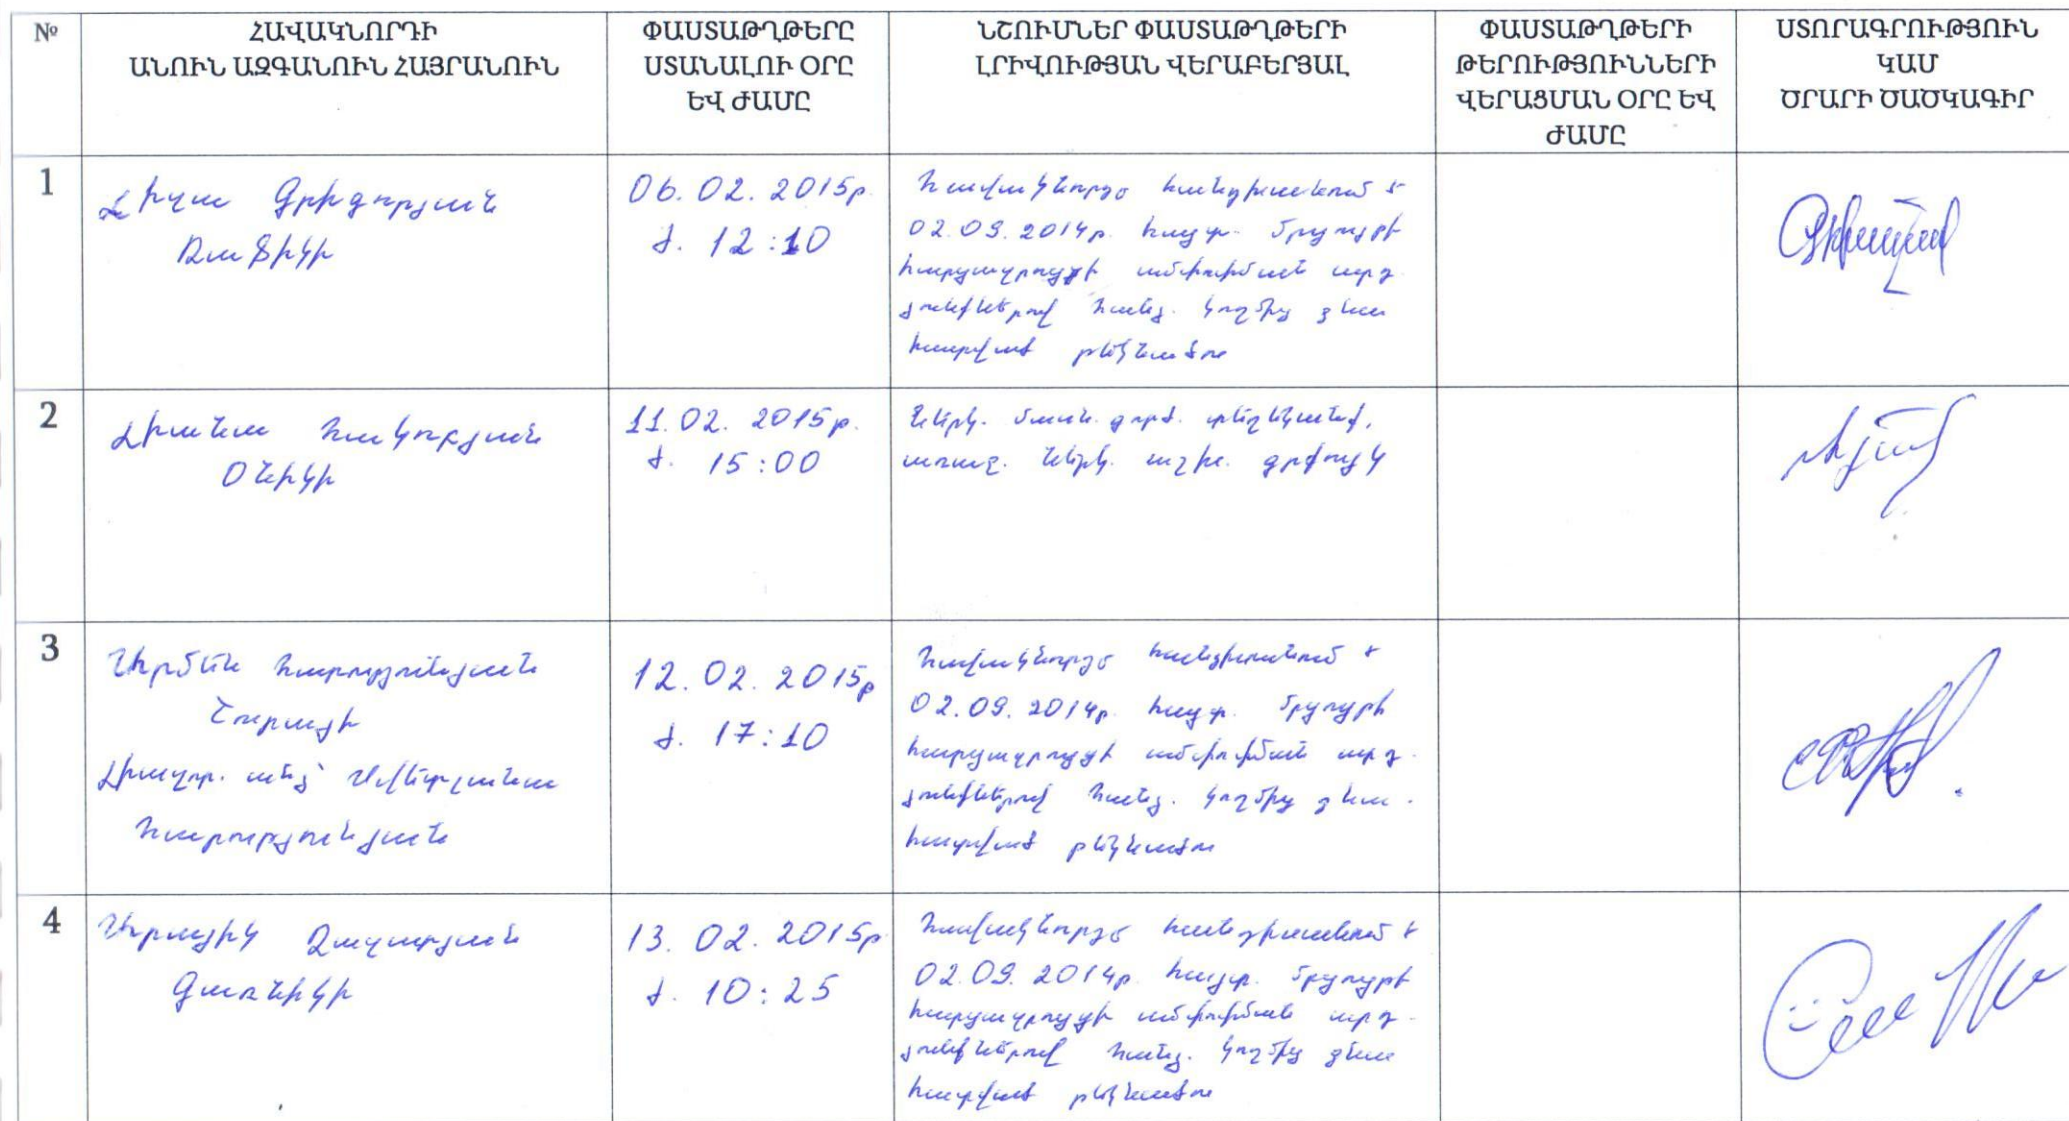 №
ՀԱՎԱԿՆՈՐԴԻ
ԱՆՈՒՆ ԱԶԳԱՆՈՒՆ ՀԱՅՐԱՆՈՒՆ
ՓԱՍՏԱԹՂԹԵՐԸ
ՍՏԱՆԱԼՈՒ ՕՐԸ
ԵՎ ԺԱՄԸ
ՆՇՈՒՄՆԵՐ ՓԱՍՏԱԹՂԹԵՐԻ
ԼՐԻՎՈՒԹՅԱՆ ՎԵՐԱԲԵՐՅԱԼ
ՓԱՍՏԱԹՂԹԵՐԻ
ԹԵՐՈՒԹՅՈՒՆՆԵՐԻ
ՎԵՐԱՑՄԱՆ ՕՐԸ ԵՎ
ԺԱՄԸ
ՍՏՈՐԱԳՐՈՒԹՅՈՒՆ
ԿԱՄ
ԾՐԱՐԻ ԾԱԾԿԱԳԻՐ
1
Լիլա Գրիգորյան
Ռաֆիկի
06.02.2015թ.
ժ. 12:10
Հավակնորդը հանդիսանում է
02.09.2014թ. հայտ. մրցույթի
հարցազրույցի ամփոփման արդ
յունքներով հանձ. կողմից գնա
հատված թեկնածու
2
Լիանա Հակոբյան
Օնիկի
11.02.2015թ.
ժ. 15:00
Ներկ. մասն. գործ. տեղեկանք,
առաջ. ներկ. աշխ. գրքույկ
3
Արմեն Հարությունյան
Շուրայի
Լիազոր. անձ՝
Հարությունյան
12.02.2015թ
ժ. 17:10
Հավակնորդը հանդիսանում է
02.09.2014թ. հայտ. մրցույթի
հարցազրույցի ամփոփման արդ.
յունքներով հանձ. կողմից գնա.
հատված թեկնածու
4
Արայիկ Ղազարյան
Գառնիկի
13.02.2015թ
ժ. 10:25
Հավակնորդը հանդիսանում է
02.09.2014թ. հայտ. մրցույթի
հարցազրույցի ամփոփման արդ-
յունքներով հանձ. կողմից գնա
հատված թեկնածու